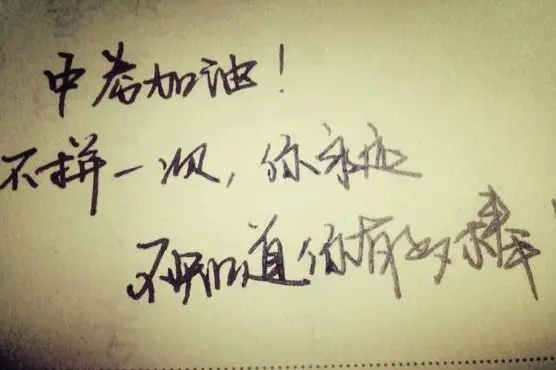 中考加油！
不拼一次，你永远
不知道你有多棒！